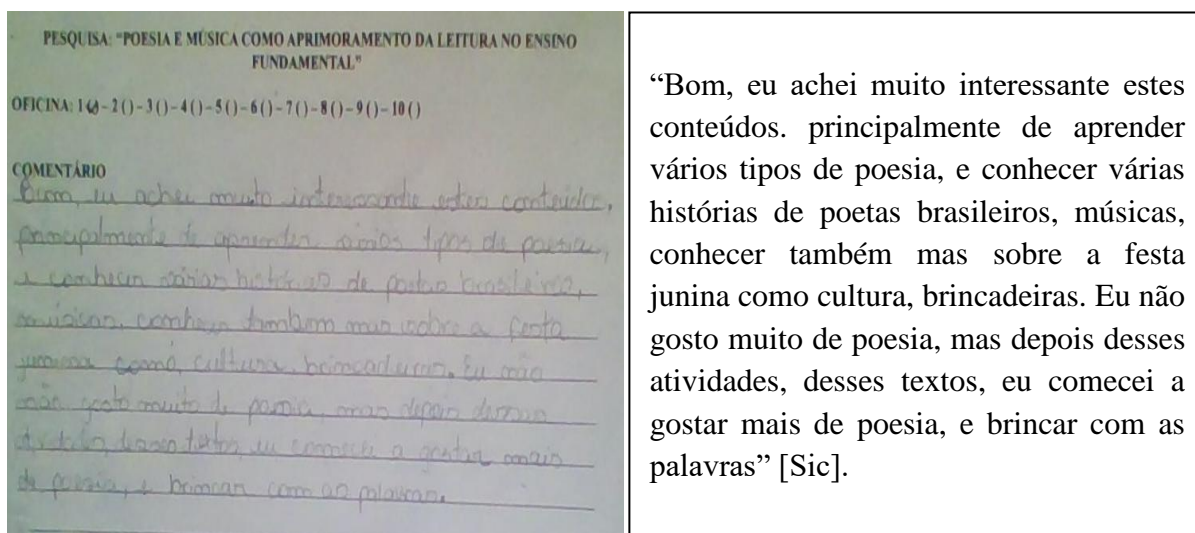 PESQUISA: "POESIA E MÚSICA COMO APRIMORAMENTO DA LEITURA NO ENSINO
FUNDAMENTAL"
OFICINA: 1 (x) – 2 ( ) – 3 ( ) – 4 ( ) – 5 ( ) – 6 ( ) – 7 ( ) – 8 ( ) – 9 ( ) – 10 ( )
COMENTÁRIO
Bom, eu achei muito interessante estes conteúdos,
principalmente de aprender vários tipos de poesia,
e conhecer várias histórias de poetas brasileiros,
músicas, conhecer também mas sobre a festa
junina como, cultura, brincadeiras. Eu não
não gosto muito de poesia, mas depois dessas
atividades, desses textos, eu comecei a gostar mais
de poesia, e brincar com as palavras.
“Bom, eu achei muito interessante estes
conteúdos. principalmente de aprender
vários tipos de poesia, e conhecer várias
histórias de poetas brasileiros, músicas,
conhecer também mas sobre a festa
junina como cultura, brincadeiras. Eu não
gosto muito de poesia, mas depois desses
atividades, desses textos, eu comecei a
gostar mais de poesia, e brincar com as
palavras” [Sic].